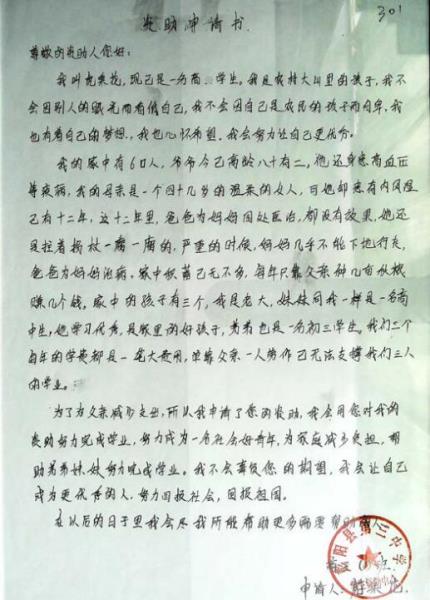 301
资助申请书
尊敬的资助人您好：
我叫    ，现已是一名高  学生，我是农村大山里的孩子，我不
会因别人的眼光而看低自己，我不会因自己是农民的孩子而自卑，我
也有着自己的梦想，我也心怀希望，我会努力让自己更优秀。
我的家中有6口人，爷爷今已高龄八十有二，他还身患高血压
等疾病，我的母亲是一个四十几岁的温柔的女人，可她却患有内风湿
已有十二年，这十二年里，爸爸为妈妈四处医治，都没有效果，她还
是拄着拐杖一瘸一瘸的，严重的时候，妈妈几乎不能下地行走，
爸爸为妈妈治病，家中积蓄已无不多，每年只靠父亲种几亩
赚几个钱。家中的孩子有三个，我是老大，妹妹同我一样是一名高
中生，她学习优秀，是家里的好孩子，弟弟也是一名初三学生。我们三个
每年的学费都是一笔大费用，单靠父亲一人劳作已无法支撑我们三人
的学业。
为了为父亲减少支出，所以我申请了您的资助，我会用您对我的
资助努力完成学业，努力成为一名社会好青年，为家庭减少负担，帮
助弟弟妹妹努力完成学业。我不会辜负您的期望，我会让自己
成为更优秀的人，努力回报社会，回报祖国。
在以后的日子里我会尽我所能帮助更多需要帮助
阳县第三中学
班
申请人：